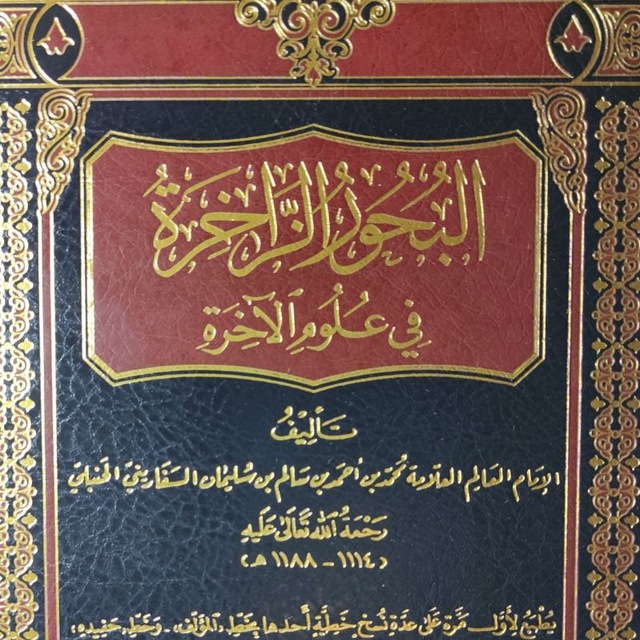 البُحُورُ الزَّاخِرَةُ
فِي عُلُومِ الْآخِرَةِ
تَأْلِيْفُ
الإمَام العَالِم العلّامة محمّد بن أحمد بن سَالم بن سُليمَان السَفّاريني الحَنبَلي
رَحْمَةُ اللهِ تَعَالَى عَلَيْهِ
(١١١٤ - ١١٨٨ هـ)
يُطبَعُ لأوّل مَرّة عَلى عدّة نُسَخ خطيّة أحدها بخَطِّ المؤلّف، وَخَطِّ حَفيده،